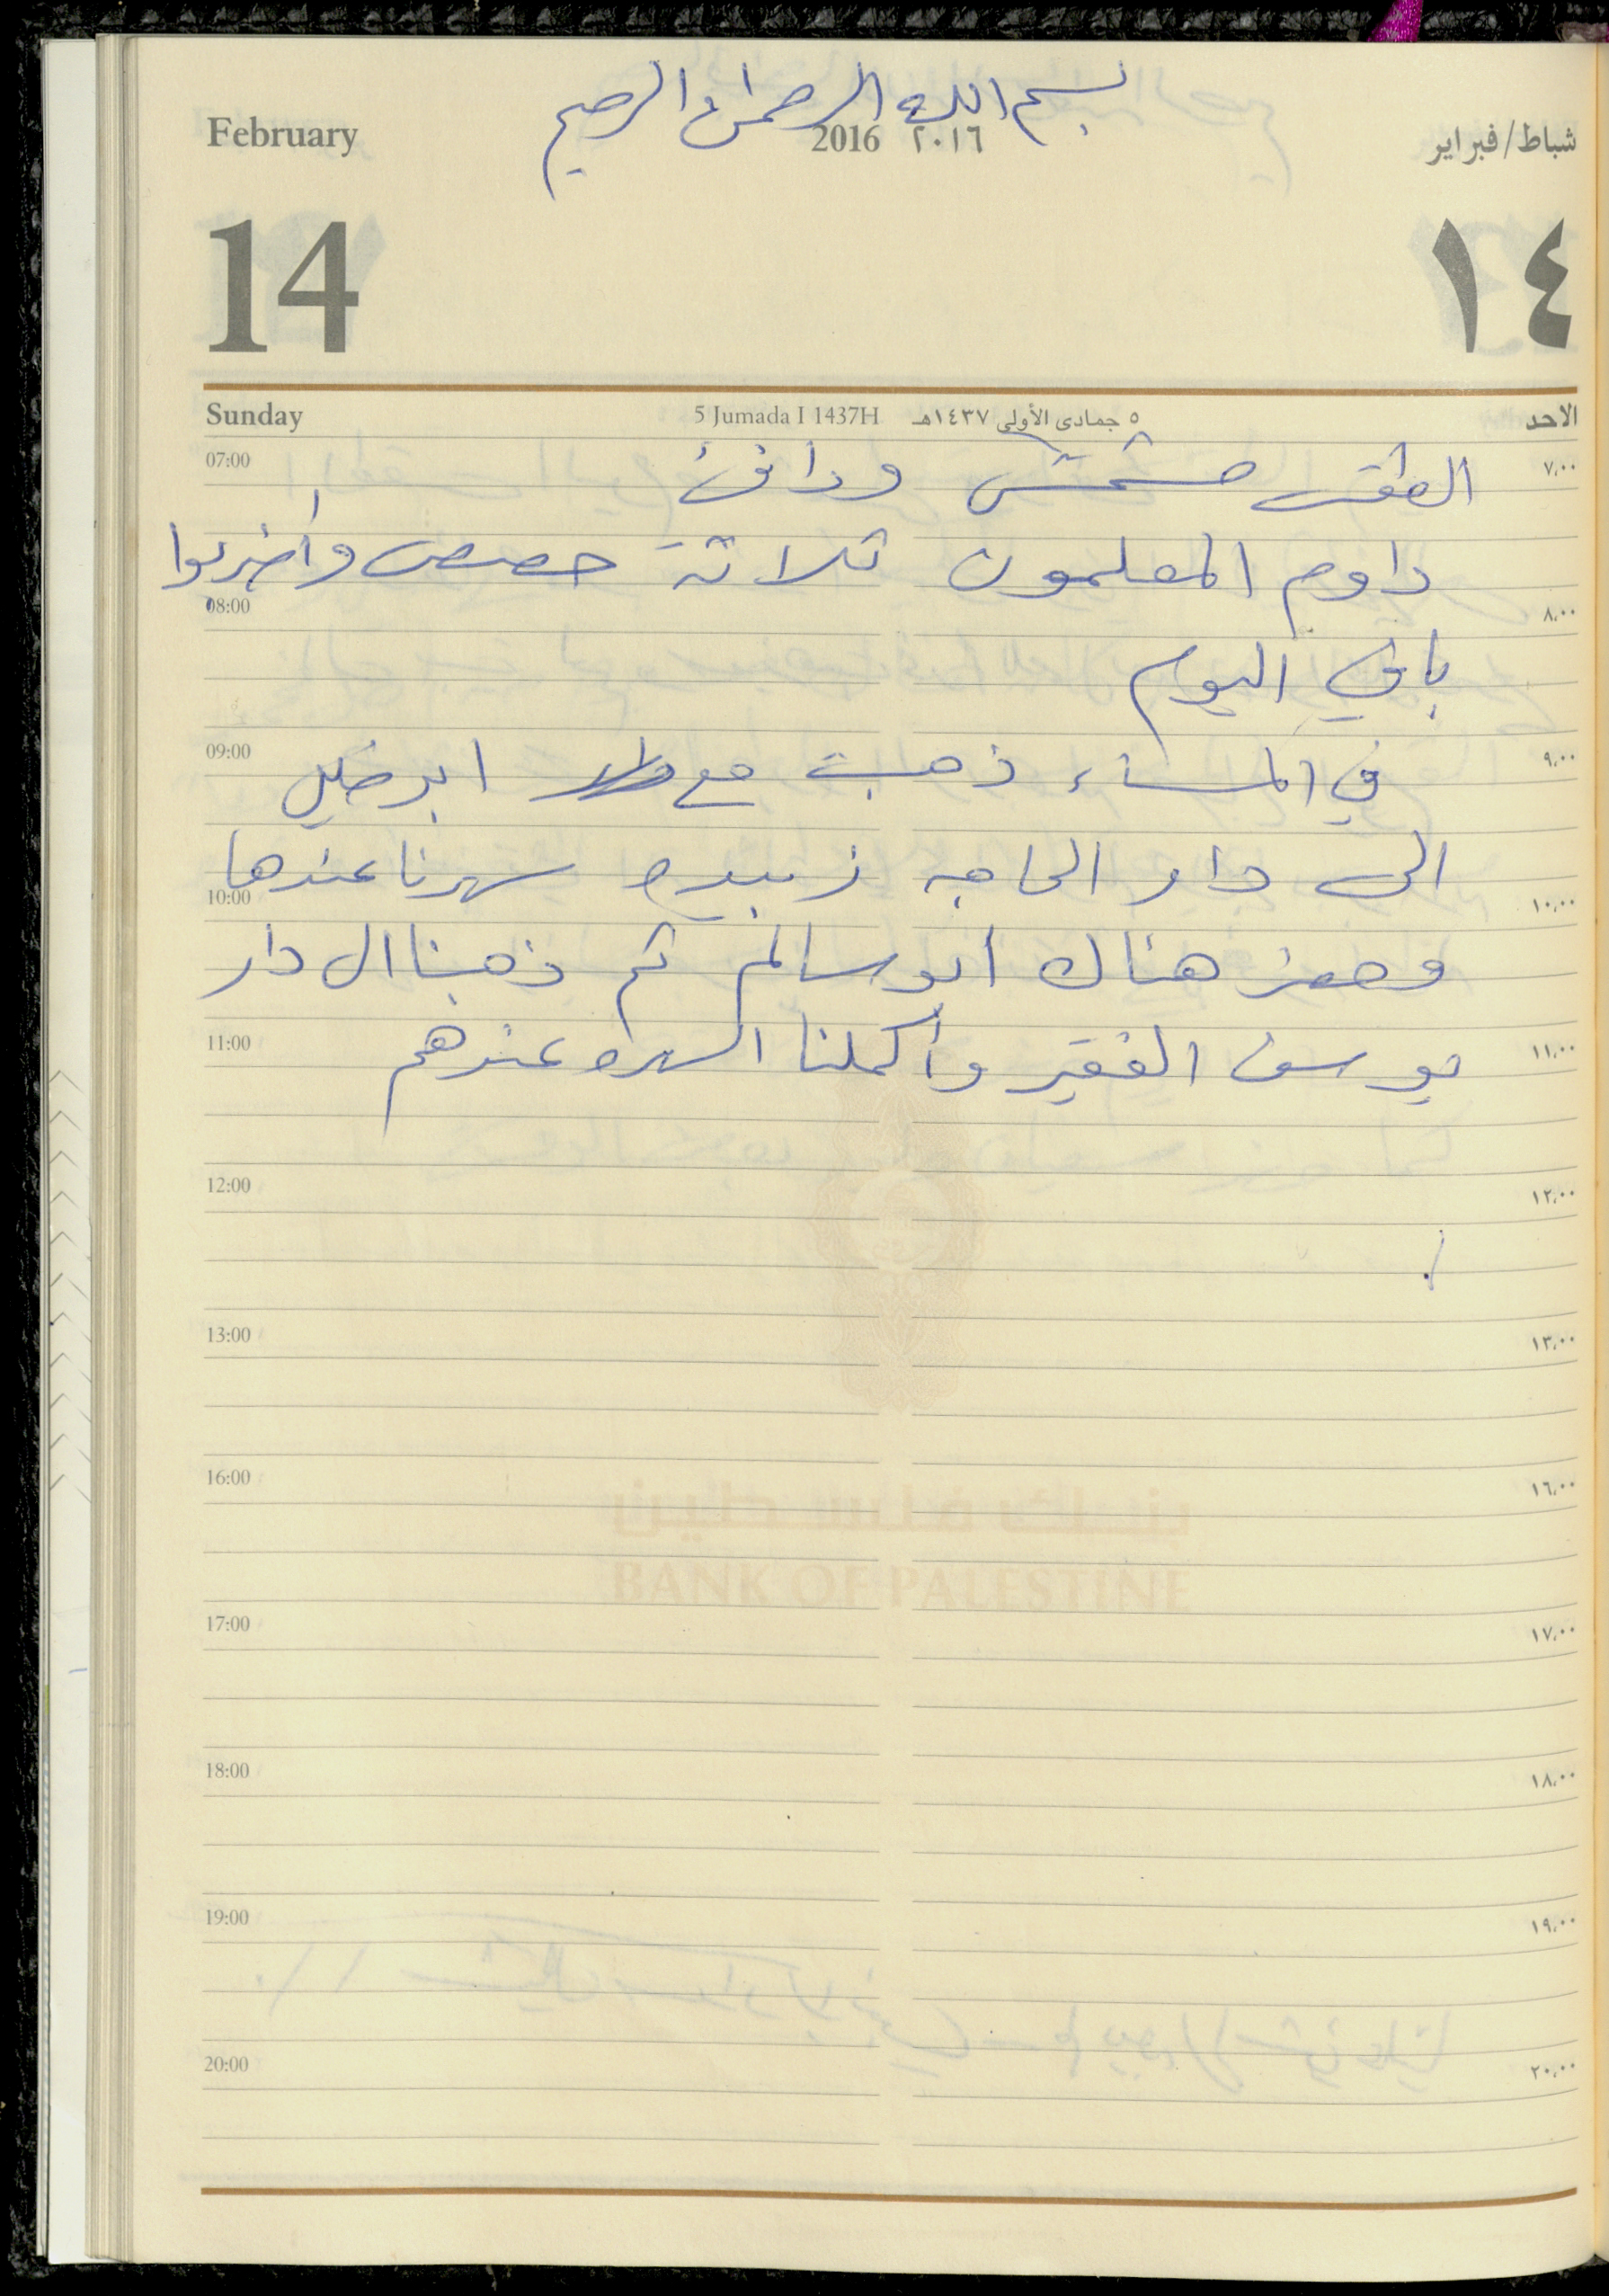 بسم الله الرحمن الرحيم
February 2016 ٢٠١٦ شباط/فبراير
14 ١٤
Sunday 5 Jumada I 1437H ٥ جمادى الأولى ١٤٣٧هـ الاحد
07:00 ٧,٠٠
الطقس مشمش ودافئ
داوم المعلمون ثلاثة حصص وأضربوا
08:00 ٨,٠٠
باقي اليوم
09:00 ٩,٠٠
في المساء ذهبت مع ابو خليل
الى دار الحاجه زبيده سهرنا عندها
10:00 ١٠,٠٠
وحضر هناك ابو سالم ثم ذهبنا الى دار
11:00 ١١,٠٠
يوسف الفقير وأكملنا السهره عندهم
12:00 ١٢,٠٠
13:00 ١٣,٠٠
16:00 ١٦,٠٠
بنك فلسطين
BANK OF PALESTINE
17:00 ١٧,٠٠
18:00 ١٨,٠٠
19:00 ١٩,٠٠
20:00 ٢٠,٠٠